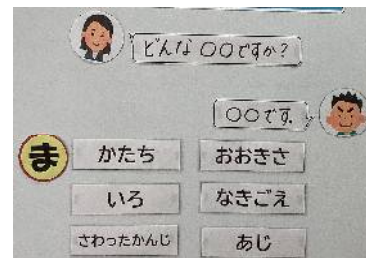 どんな〇〇ですか?
〇〇です。
ま
かたち
おおきさ
いろ
なきごえ
さわったかんじ
あじ